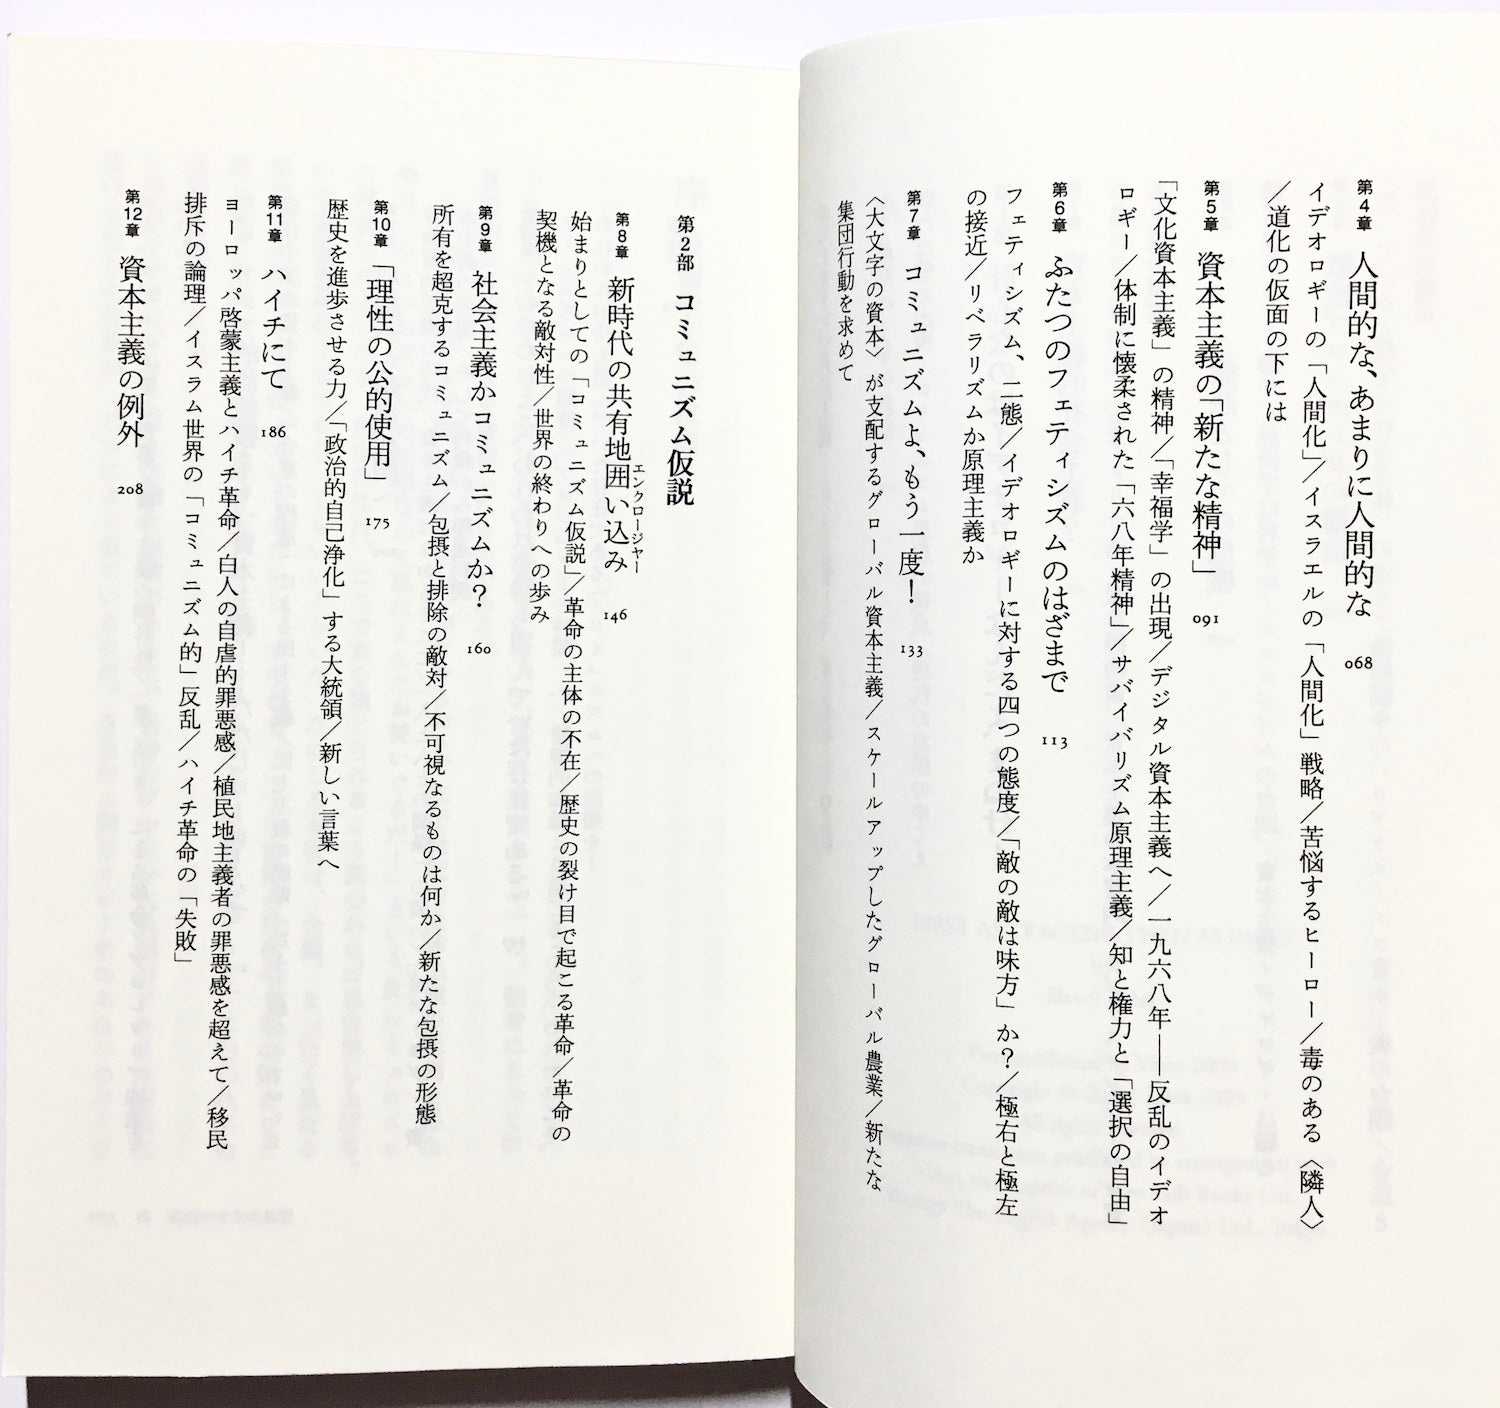 第4章 人間的な、あまりに人間的な 068
イデオロギーの「人間化」/イスラエルの「人間化」戦略/苦悩するヒーロー/毒のある〈隣人〉
/道化の仮面の下には
第5章 資本主義の「新たな精神」 091
「文化資本主義」の精神/「幸福学」の出現/デジタル資本主義へ/一九六八年――反乱のイデオ
ロギー/体制に懐柔された「六八年精神」/サバイバリズム原理主義/知と権力と「選択の自由」
第6章 ふたつのフェティシズムのはざまで 113
フェティシズム、二態/イデオロギーに対する四つの態度/「敵の敵は味方」か?/極右と極左
の接近/リベラリズムか原理主義か
第7章 コミュニズムよ、もう一度! 133
〈大文字の資本〉が支配するグローバル資本主義/スケールアップしたグローバル農業/新たな
集団行動を求めて
第2部 コミュニズム仮説
第8章 新時代の共有地囲い込み エンクロージャー 146
始まりとしての「コミュニズム仮説」/革命の主体の不在/歴史の裂け目で起こる革命/革命の
契機となる敵対性/世界の終わりへの歩み
第9章 社会主義かコミュニズムか? 160
所有を超克するコミュニズム/包摂と排除の敵対/不可視なるものは何か/新たな包摂の形態
第10章 「理性の公的使用」 175
歴史を進歩させる力/「政治的自己浄化」する大統領/新しい言葉へ
第11章 ハイチにて 186
ヨーロッパ啓蒙主義とハイチ革命/白人の自虐的罪悪感/植民地主義者の罪悪感を超えて/移民
排斥の論理/イスラム世界の「コミュニズム的」反乱/ハイチ革命の「失敗」
第12章 資本主義の例外 208